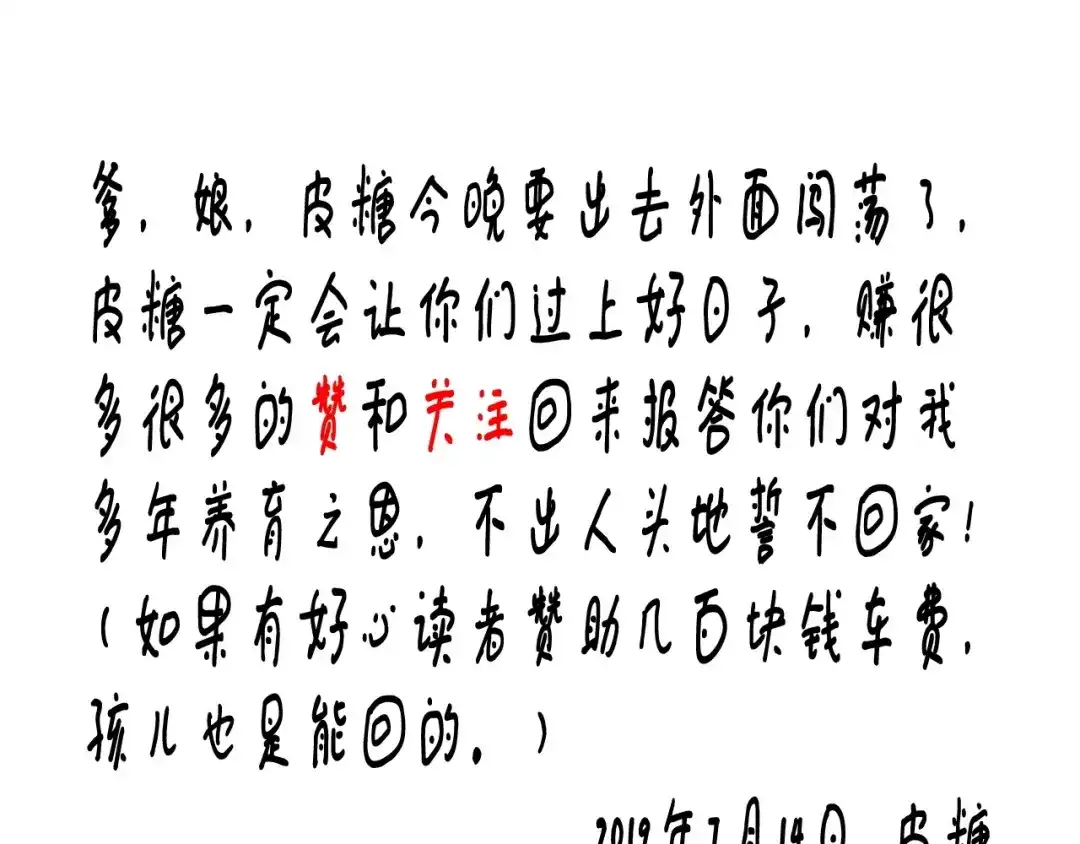 爹,娘,皮糖今晚要出去外面闯荡了,
皮糖一定会让你们过上好日子,赚很
多很多的赞和关注回来报答你们对我
多年养育之恩,不出人头地誓不回家!
(如果有好心读者赞助几百块钱车费,
孩儿也是能回的。)
2019年7月14日 皮糖